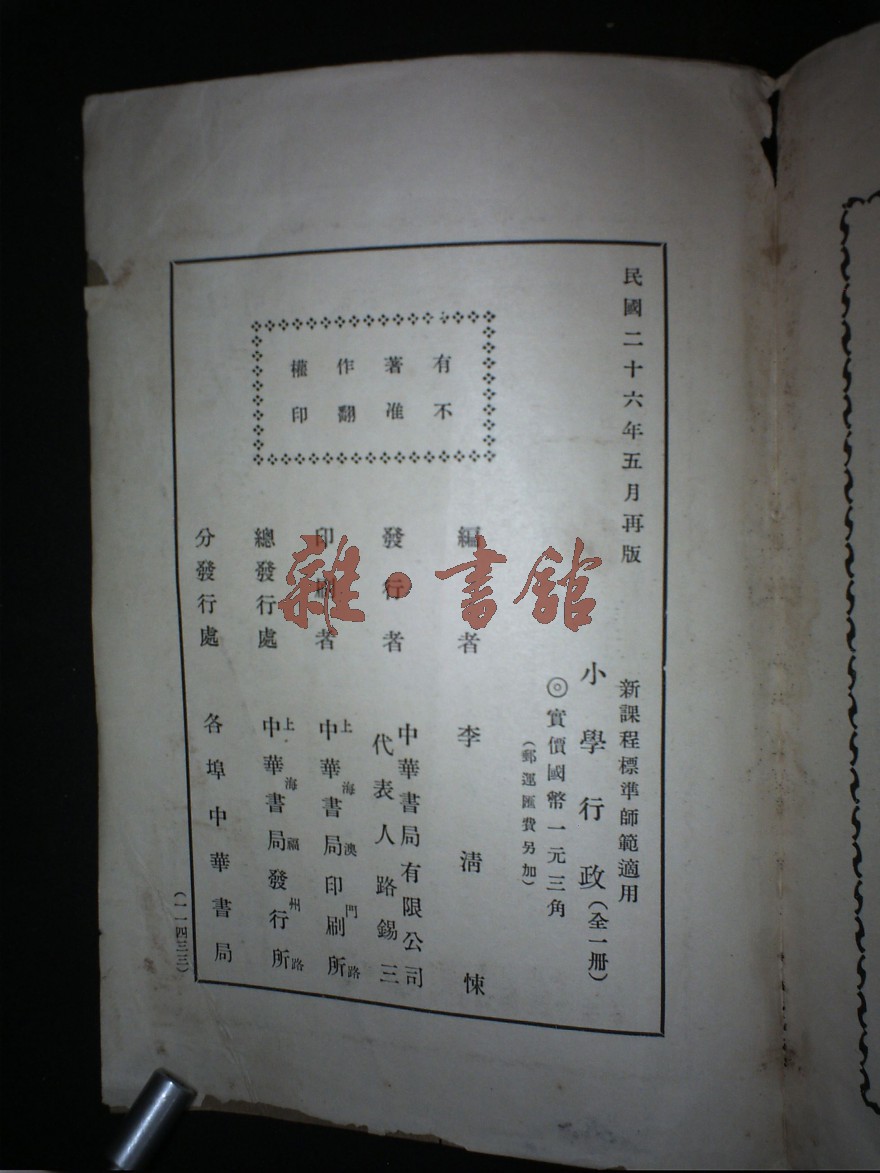 民國二十六年五月再版
新課程標準師範適用
小學行政(全一册)
◎實價國幣一元三角
(郵運匯費另加)
有不
著准
作翻
權印
編者 李淸悚
發行者 中華書局有限公司
代表人路錫三
印刷者 上海澳門路
中華書局印刷所
總發行處 上海福州路
中華書局發行所
分發行處 各埠中華書局
(一一四三三)
雜·書館